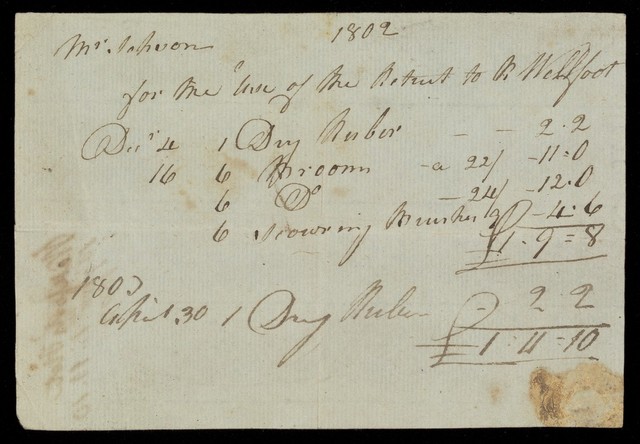 1802
Mr. Johnson
for the Use of the Retreat to R Wellfoot
Decr 4 1 Dry Ruber - - 2.2
16 6 Brooms - a 22/ - 11:0
6 Do - 24/ - 12.0
6 Scowring Brushes 9 - 4:6
£1.9=8
1803
April 30 1 Dry Ruber - 2.2
£1:11=10